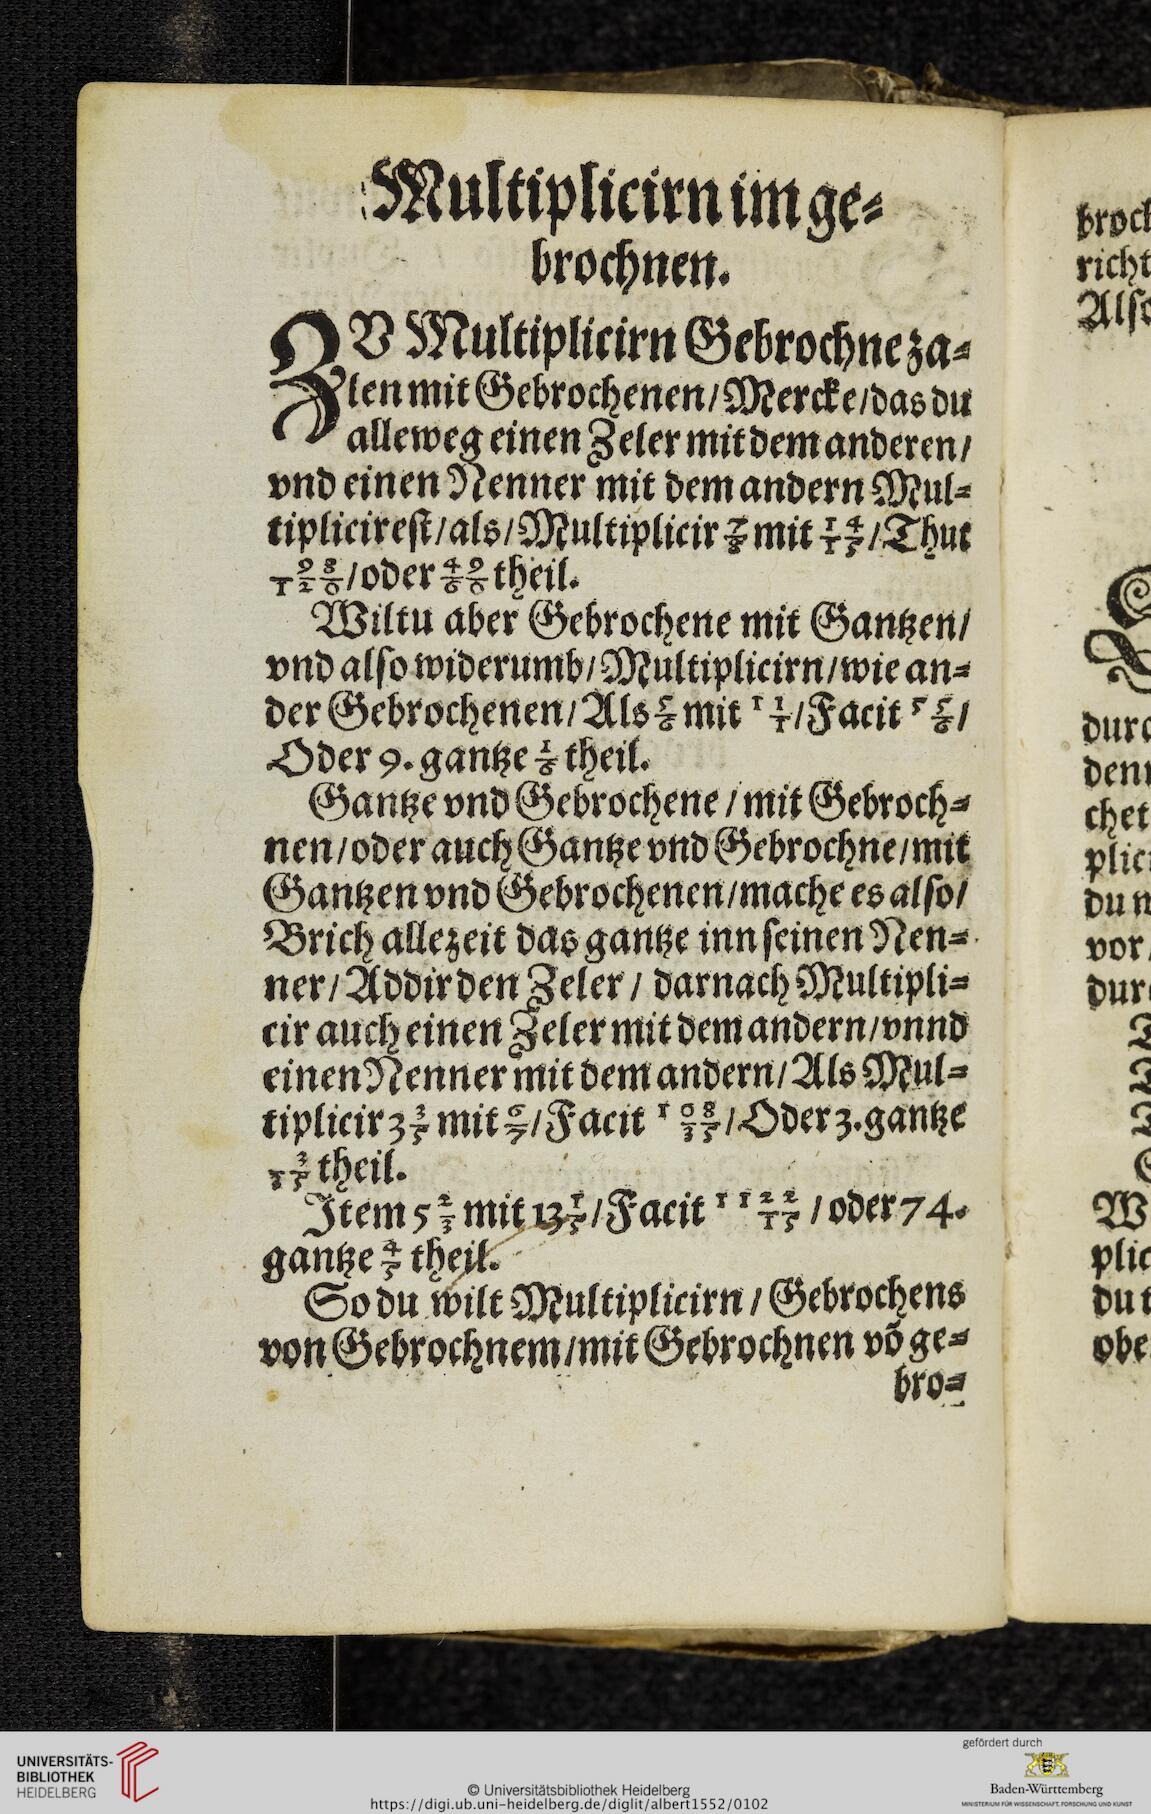 Multiplicirn im ge⸗
brochnen.
ZV Multiplicirn Gebrochne za⸗
len mit Gebrochenen/Mercke/das du
alleweg einen Zeler mit dem anderen/
vnd einen Nenner mit dem andern Mul⸗
tiplicirest/als/Multiplicir 7/8 mit 14/15/Thut
98/120/oder 49/60 theil.
Wiltu aber Gebrochene mit Gantzen/
vnd also widerumb/Multiplicirn/wie an⸗
der Gebrochenen/Als 5/6 mit 11/1/Facit 55/6/
Oder 9. gantze 1/6 theil.
Gantze vnd Gebrochene/mit Gebroch⸗
nen/oder auch Gantze vnd Gebrochne/mit
Gantzen vnd Gebrochenen/mache es also/
Brich allezeit das gantze inn seinen Nen⸗
ner/Addir den Zeler/darnach Multipli⸗
cir auch einen Zeler mit dem andern/vnnd
einen Nenner mit dem andern/Als Mul⸗
tiplicir 3 3/5 mit 6/7/Facit 108/35/Oder 3. gantze
3/35 theil.
Item 5 2/3 mit 13 1/5/Facit 1122/15/oder 74.
gantze 4/5 theil.
So du wilt Multiplicirn/Gebrochens
von Gebrochnem/mit Gebrochnen võ ge⸗
bro⸗
broch
richt
Also
durc
den
chet
plici
du w
vor/
dur
W
plic
du t
obe
UNIVERSITÄTS-
BIBLIOTHEK
HEIDELBERG
© Universitätsbibliothek Heidelberg
https://digi.ub.uni-heidelberg.de/diglit/albert1552/0102
gefördert durch
Baden-Württemberg
MINISTERIUM FÜR WISSENSCHAFT, FORSCHUNG UND KUNST